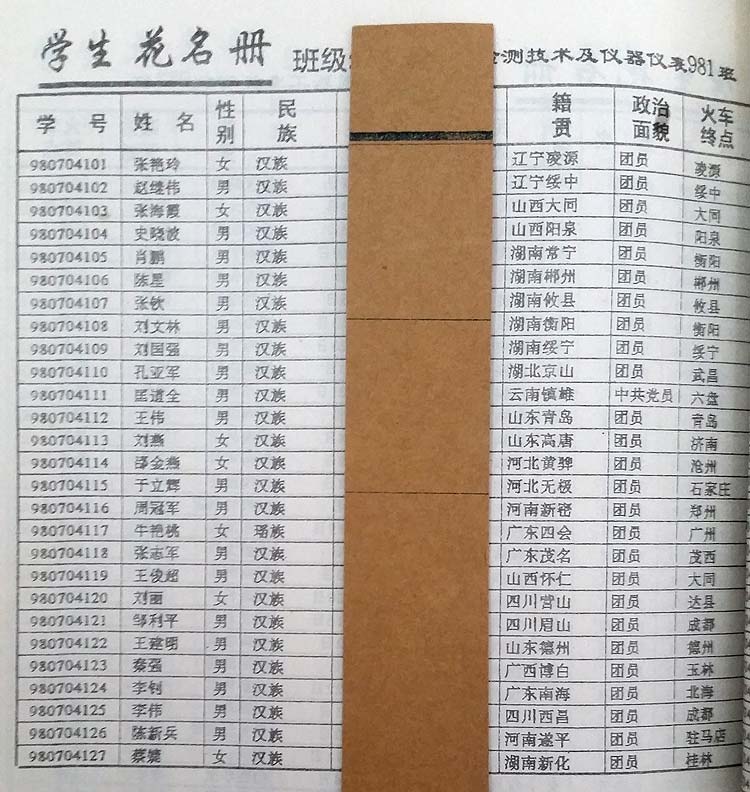 学生花名册 班级 检测技术及仪器仪表981班
学号 姓名 性别 民族 籍贯 政治面貌 火车终点
980704101 张艳玲 女 汉族 辽宁凌源 团员 凌源
980704102 赵继伟 男 汉族 辽宁绥中 团员 绥中
980704103 张海霞 女 汉族 山西大同 团员 大同
980704104 史晓波 男 汉族 山西阳泉 团员 阳泉
980704105 肖鹏 男 汉族 湖南常宁 团员 衡阳
980704106 陈星 男 汉族 湖南郴州 团员 郴州
980704107 张钦 男 汉族 湖南攸县 团员 攸县
980704108 刘文林 男 汉族 湖南衡阳 团员 衡阳
980704109 刘国强 男 汉族 湖南绥宁 团员 绥宁
980704110 孔亚军 男 汉族 湖北京山 团员 武昌
980704111 匡道全 男 汉族 云南镇雄 中共党员 六盘
980704112 王伟 男 汉族 山东青岛 团员 青岛
980704113 刘燕 女 汉族 山东高唐 团员 济南
980704114 邵金燕 女 汉族 河北黄骅 团员 沧州
980704115 于立辉 男 汉族 河北无极 团员 石家庄
980704116 周冠军 男 汉族 河南新密 团员 郑州
980704117 牛艳桃 女 瑶族 广东四会 团员 广州
980704118 张志军 男 汉族 广东茂名 团员 茂西
980704119 王俊超 男 汉族 山西怀仁 团员 大同
980704120 刘丽 女 汉族 四川营山 团员 达县
980704121 邹利平 男 汉族 四川眉山 团员 成都
980704122 王建明 男 汉族 山东德州 团员 德州
980704123 秦强 男 汉族 广西博白 团员 玉林
980704124 李钊 男 汉族 广东南海 团员 北海
980704125 李伟 男 汉族 四川西昌 团员 成都
980704126 陈新兵 男 汉族 河南遂平 团员 驻马店
980704127 蔡 女 汉族 湖南新化 团员 桂林